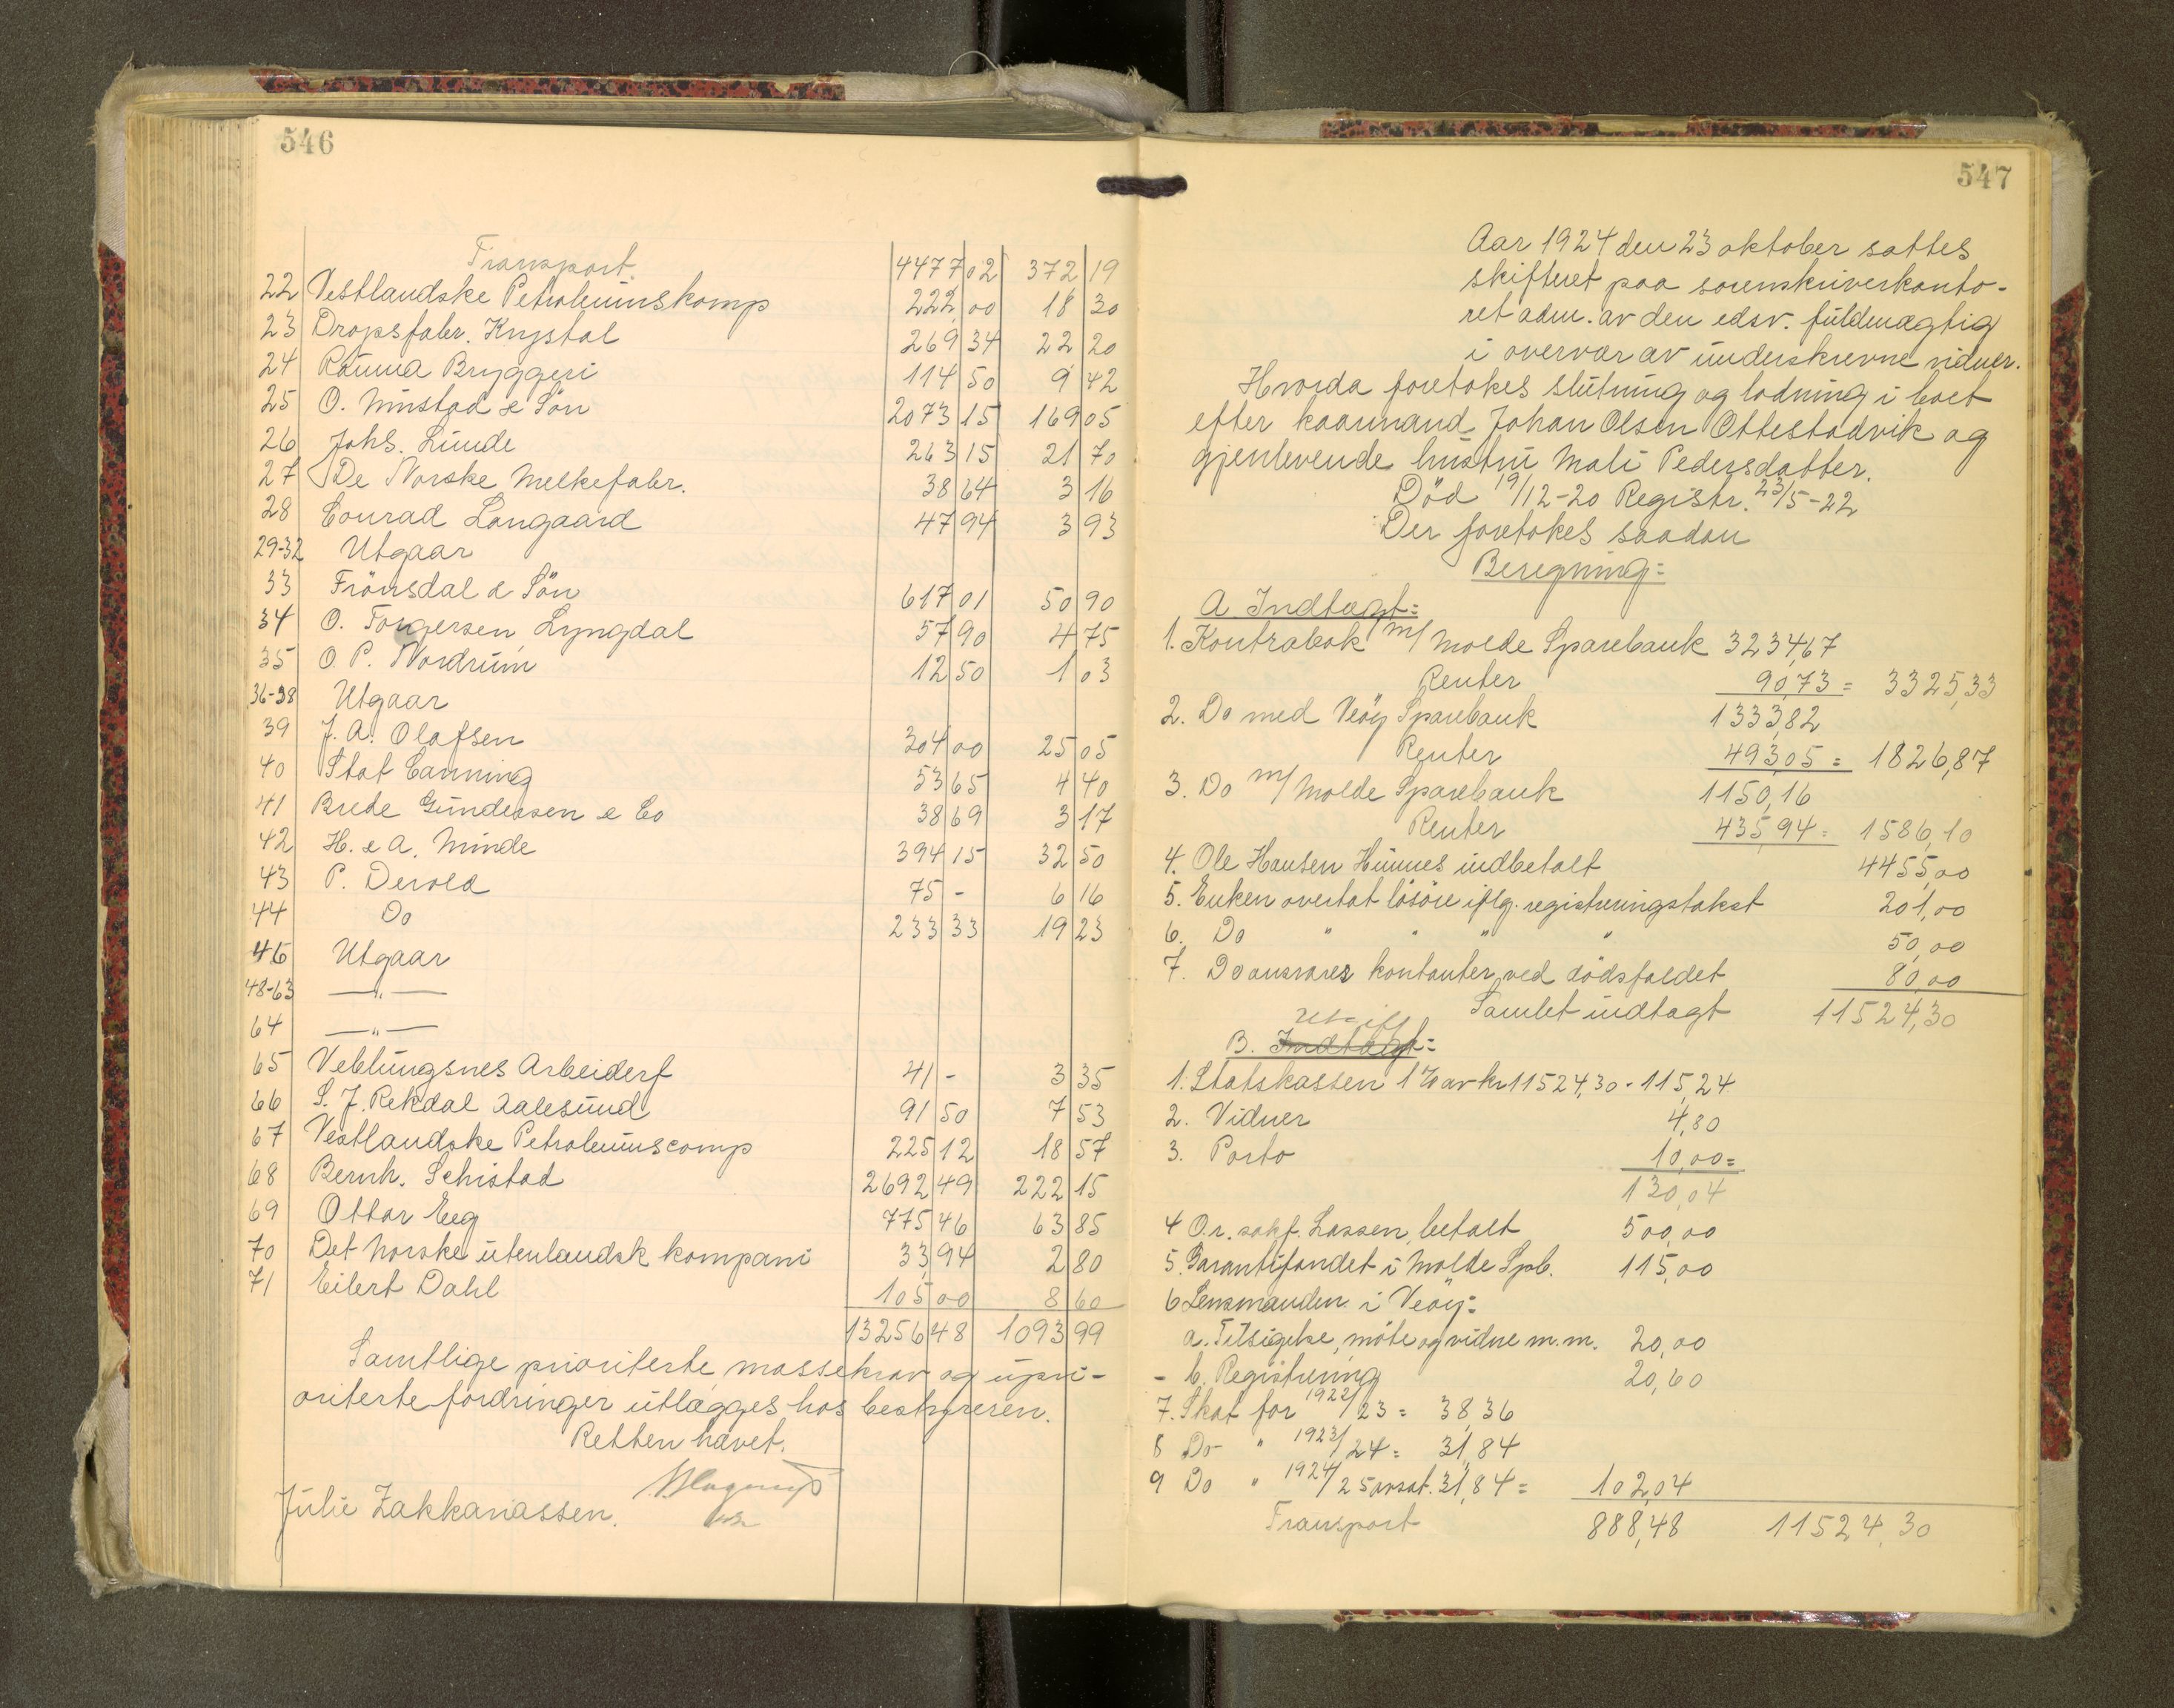 546
Transport. 4477 02 372 19
22 Vestlandske Petroleumskomp 222,00 18 30
23 Dropsfabr. Krystal 269 34 22 20
24 Rauma Bryggeri 114 50 9 42
25 O. Mustad & Sön 2073 15 169 05
26 Johs. Lunde 263 15 21 70
27 De Norske Melkefabr. 38 64 3 16
28 Conrad Langaard 47 94 3 93
29-32 Utgaar
33 Frönsdal & Sön 617 01 50 90
34 O. Torgersen, Lyngdal 57 90 4 75
35 O. P. Nordrum 12 50 1 03
36-38 Utgaar
39 J. A. Olafsen 304 00 25 05
40 Stat Canning 53 65 4 40
41 Brede Gundersen & Co 38 69 3 17
42 H. & A. Minde 394 15 32 50
43 P. Devold 75 - 6 16
44 Do 233 33 19 23
46 Utgaar
48-63 —"—
64 —"—
65 Veblungsnes Arbeiderf 41 - 3 35
66 S. J. Rekdal Aalesund 91 50 7 53
67 Vestlandske Petroleumscomp 225 12 18 57
68 Bernh. Schistad 2692 49 222 15
69 Ottar Eeg 775 46 63 85
70 Det norske utenlandsk kompani 33,94 2 80
71 Eilert Dahl 105 00 8 60
13256 48 1093 99
Samtlige prioriterte, massekrav og upri-
oriterte fordringer utlægges hos bestyreren.
Retten hævet.
Julie Zakkariassen.
547
Aar 1924 den 23 oktober sattes
skifteret paa sorenskriverkonto-
ret adm. av den edsv. fuldmægtig
i overvær av underskrevne vidner.
Hvorda foretokes slutning og lodning i boet
efter kaarmand Johan Olsen Ottestadvik og
gjenlevende hustru Mali Pedersdatter.
Död 19/12-20 Registr. 23/5-22
Der foretokes saadan
Beregning:
A. Indtægt:
1. Kontrabok m/ Molde Sparebank 3234,67
Renter 90,73 = 3325,33
2. Do med Veöy Sparebank 1333,82
Renter 493,05 = 1826,87
3. Do m/ Molde Sparebank 1150,16
Renter 435,94 = 1586,10
4. Ole Hansen Hunnes indbetalt 4455,00
5. Enken overtat lösöre iflg. registreringstakst 201,00
6. Do " " " " 50,00
7. Do ansvarer kontanter ved dödsfaldet 80,00
Samlet indtægt 11524,30
B. Indtægt:
1. Statskassen 1 % av kr 11524,30 - 115,24
2. Vidner 4,80
3. Porto 10,00 =
130,04
4 O.r. sakf. Lassen, betalt 500,00
5. Garantifondet i Molde Spb. 115,00
6 Lensmanden i Veöy:
a. Tilsigelse, möte og vidne m. m. 20,00
- b. Registrering 20,60
7. Skat for 1922/23 = 38,36
8 Do " 1923/24 = 31,84
9 Do " 1924/25 avsat. 31,84 = 102,04
Transport 888,48 11524,30